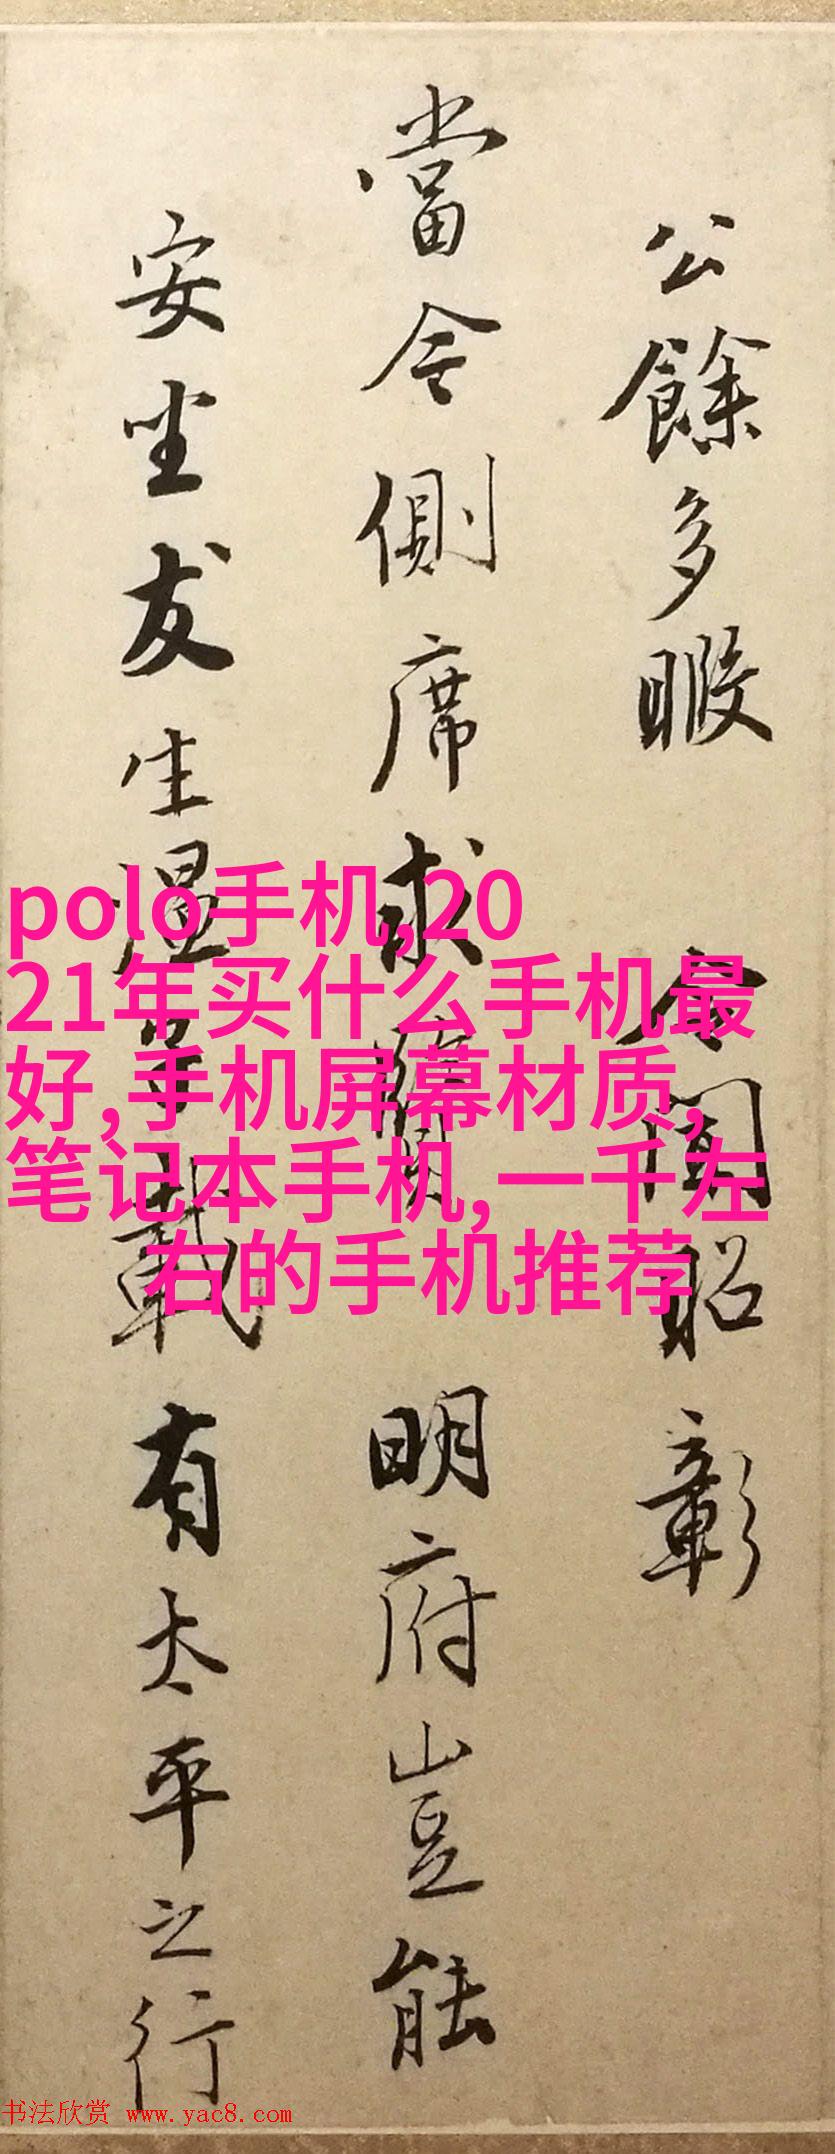 公餘多暇 令聞昭彰
當今側席求賢 明府豈能
安坐友生湿 載有太平之行
polo手机,20
21年买什么手机最
好,手机屏幕材质,
笔记本手机,一千左
右的手机推荐
书法欣赏 www.yac8.com